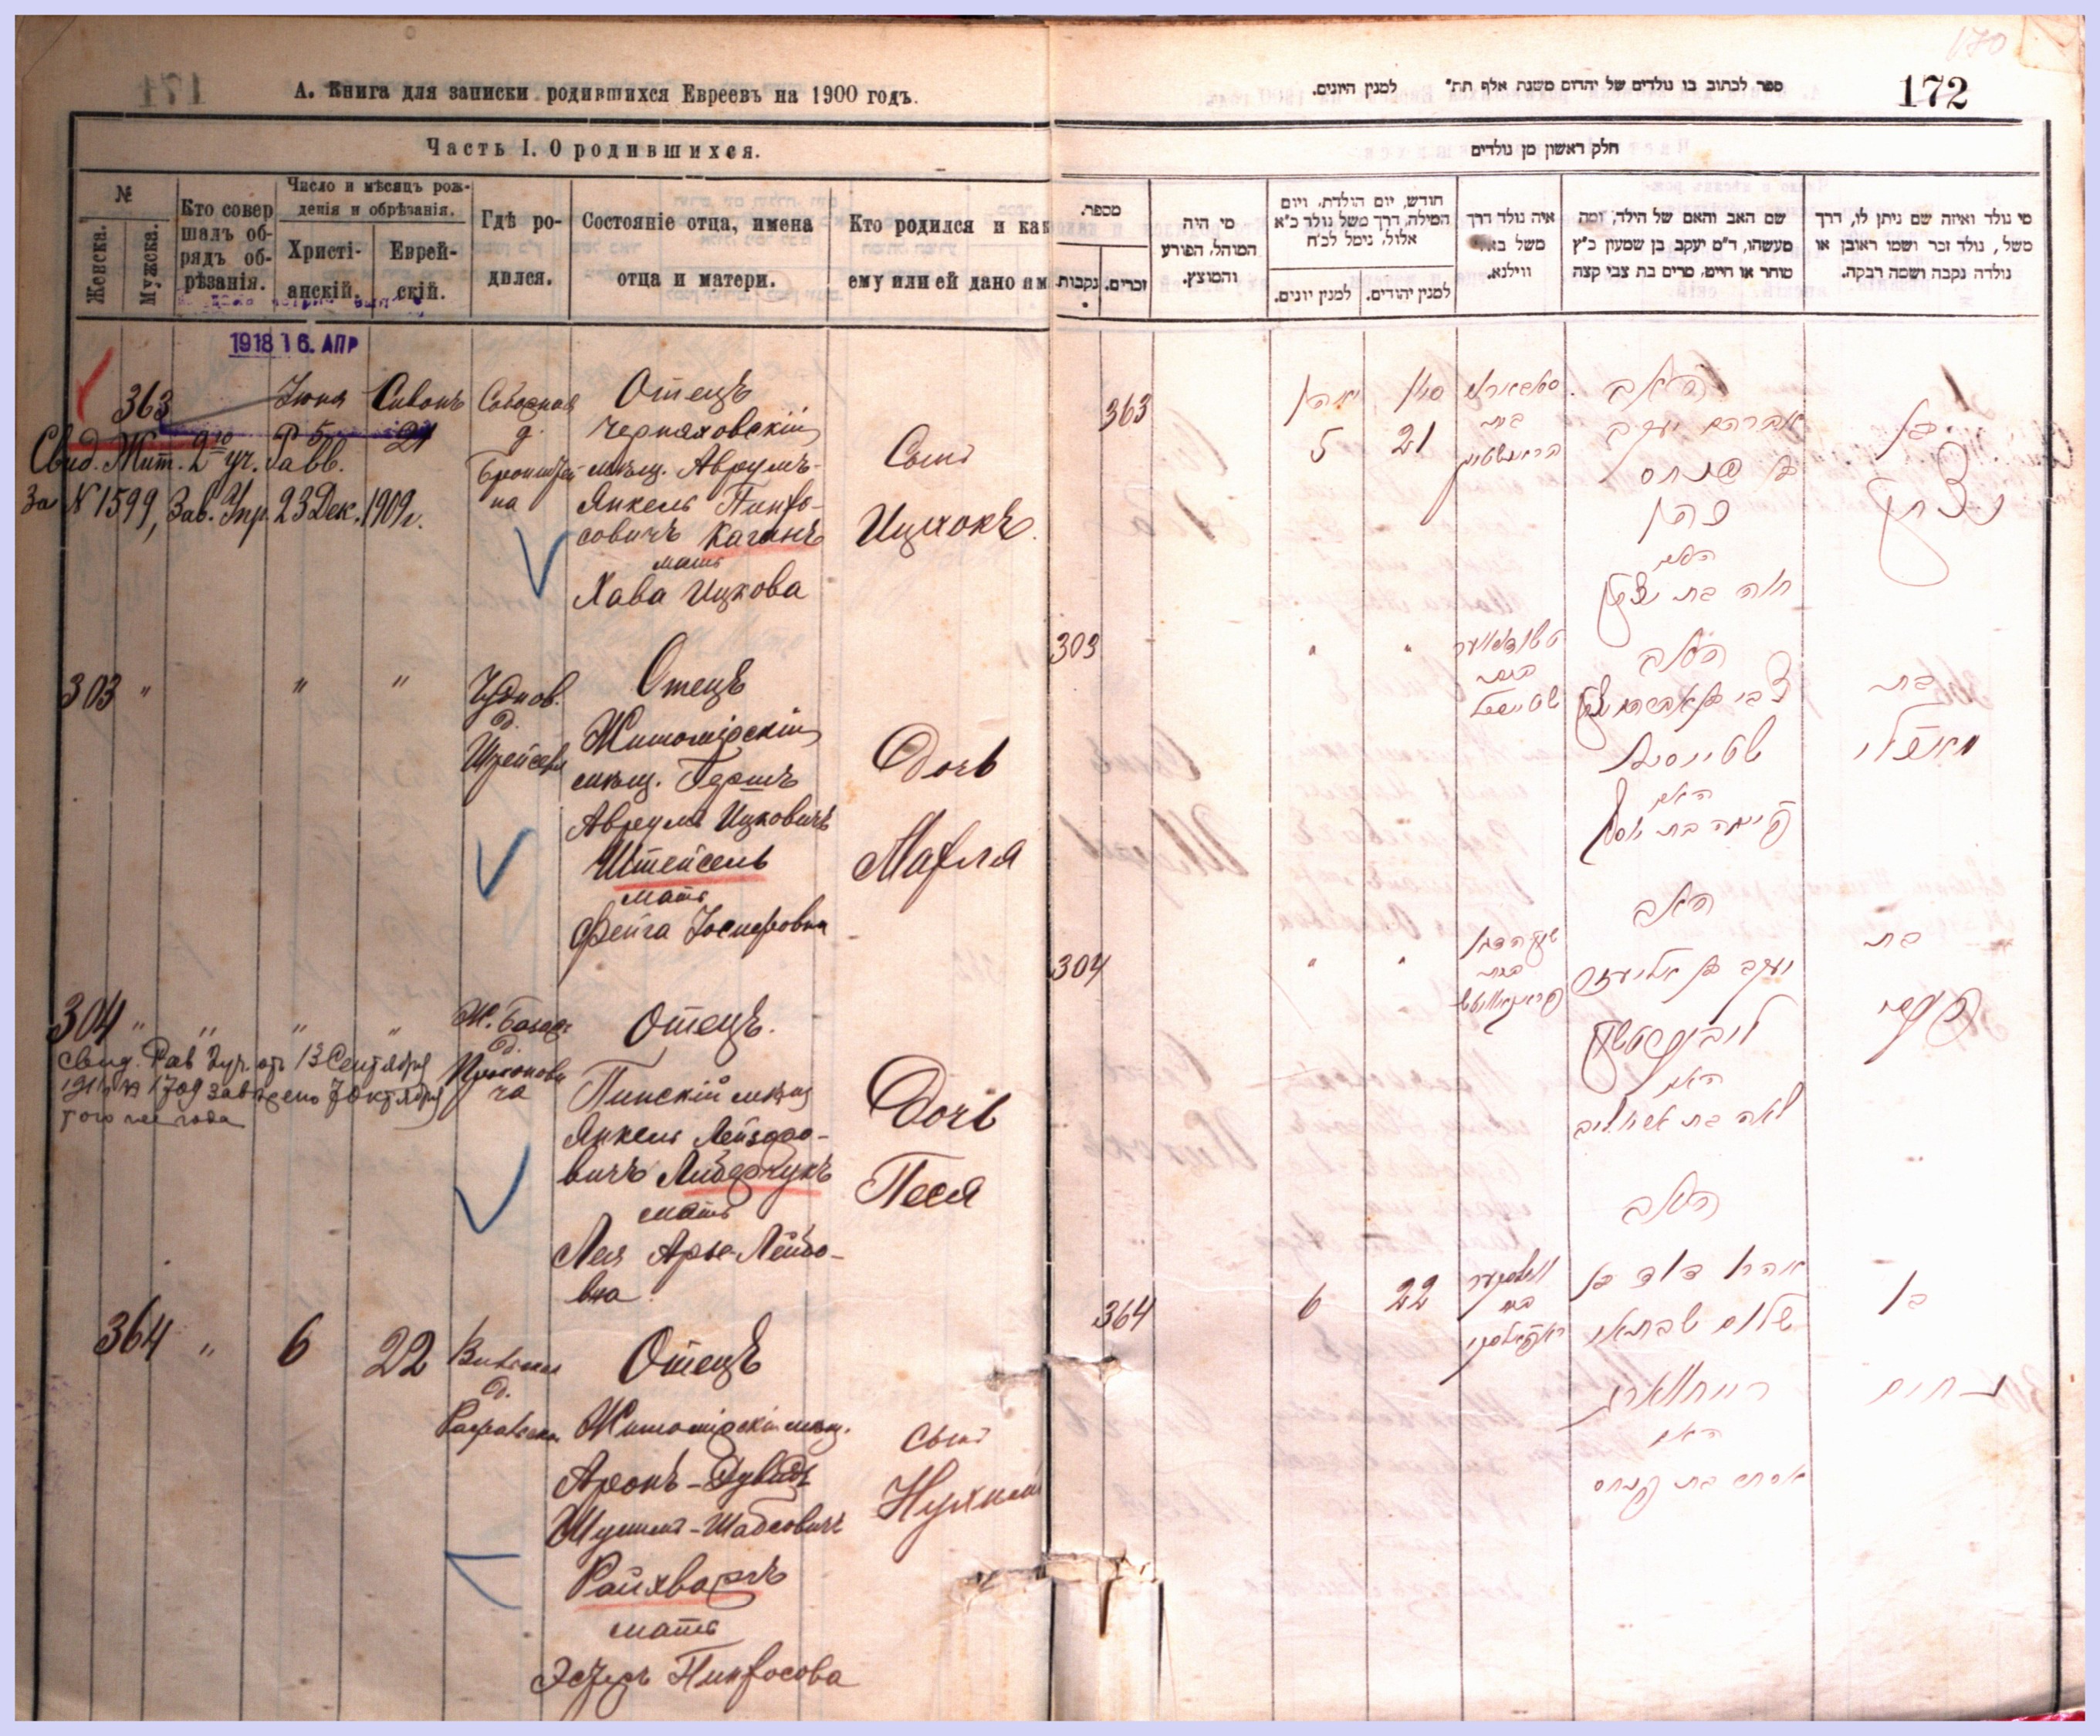 А. Книга для записки родившихся Евреевъ на 1900 годъ.
Часть I. О родившихся.
№
Женска.
Мужска.
Кто совер
шалъ об-
рядъ об-
рѣзанія.
Число и мѣсяцъ рож-
денія и обрѣзанія.
Христі-
анскій.
Еврей-
скій.
Гдѣ ро-
дился.
Состояніе отца, имена
отца и матери.
Кто родился и как
ему или ей дано им
1918 16. АПР
363
Июня
Сивонъ
5
21
Соборная
д.
Бронштей
на
Отецъ
Черняховскій
мѣщ. Аврумъ-
Янкель Пинхо-
совичъ Каганъ
мать
Хава Ицкова
Сынъ
Ицхокъ.
Свид. Жит. 2го уч. Равв.
За № 1599, Зав. Упр. 23 Дек. 1909 г.
303 " " "
Чуднов.
д.
Отецъ
Житомірскій
мѣщ. Гершъ
Аврумъ Ицковичъ
Штейсель
мать
Фейга Іосифовна
Дочь
Малля
304 " " " "
Свид. Рав 2 уч. отъ 13 Сентября
1911 № 1709 заверено 7 Октября
того же года
д.
Отецъ.
Пинскій мѣщ
Янкель Лейзоро-
вичъ Либерчукъ
мать
Лея Арье-Лейбо-
вна
Дочь
Песя
364 " 6 22
Вильская
д.
Отецъ
Житомірскій мѣщ.
Аронъ-Дувидъ
Шулимъ-Шабсовичъ
Райхваргъ
мать
Эстеръ Пинхосова
Сынъ
Нухимъ
172
ספר לכתוב בו נולדים של יהדום משנת אלף תת" למנין היונים.
חלק ראשון מן נולדים
מספר.
נקבות
זכרים.
מי היה
המוהל, הפורע
והמוצץ.
חודש, יום הולדת, ויום
המילה, דרך משל נולד כ"א
אלול, נימל לכ"ח
למנין יונים.
למנין יהודים.
איה נולד דרך
משל
ווילנא.
שם האב והאם של הילד, ומה
מעשהו, ד"ם יעקב בן שמעון כ"ץ
סוחר או חייט, מרים בת צבי קצה
מי נולד ואיזה שם ניתן לו, דרך
משל, נולד זכר ושמו ראובן או
נולדה נקבה ושמה רבקה.
363
5
21
סיון
האב
אברהם יעקב
בן פנחס
כהן
האם
חוה בת יצחק
בן
יצחק
303 " "
האב
צבי בן אברהם יצחק
שטייסעל
האם
פייגה בת יוסף
בת
מאטלי
304 " "
האב
יעקב בן אליעזר
ליבערטשוק
האם
לאה בת
בת
פעסי
364
6
22
האב
אהרן דוד בן
שלום שבתאי
רייחווארג
האם
אסתר בת פנחס
בן
נחום